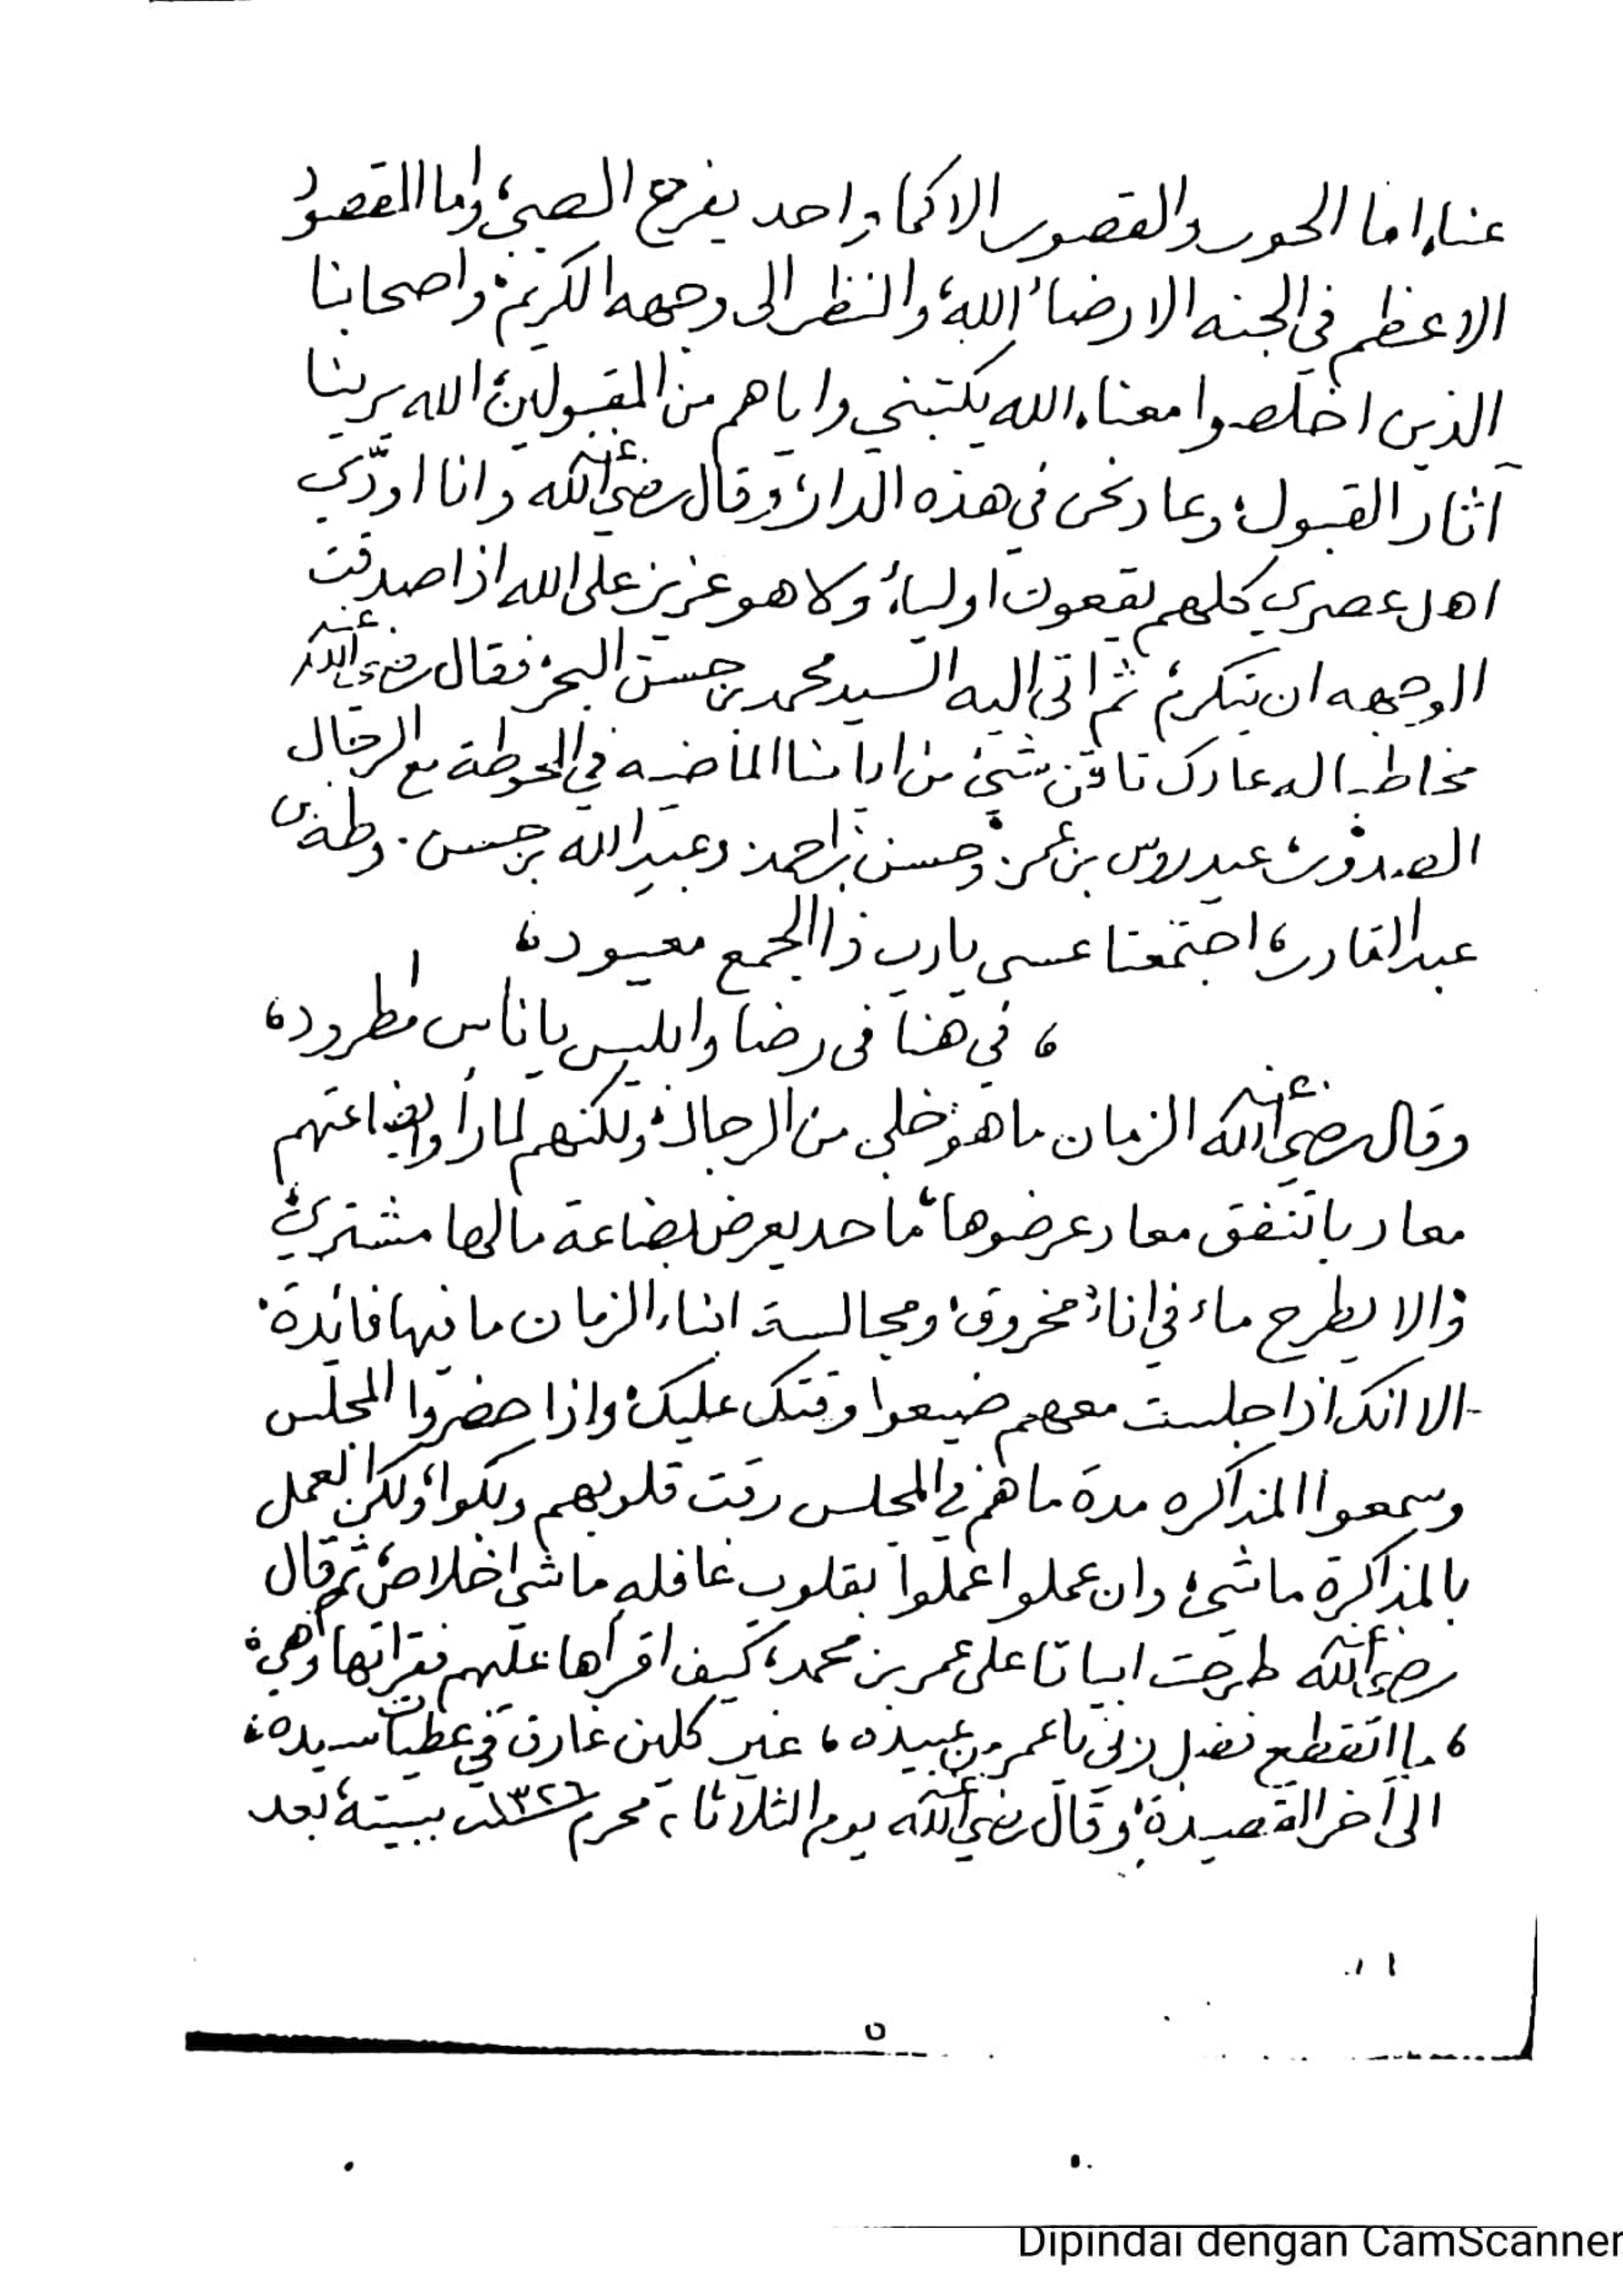 عناء اما الحور والقصور الا كما واحد يفرح الصبي، واما المقصود
الاعظم في الجنه الا رضاء الله، والنظر الى وجهه الكريم، واصحابنا
الذين اخلصوا معنا، الله يكتبني واياهم من المقبولين، الله يرينا
آثار القبول، وعاد نحن في هذه الدار، وقال رضي الله عنه وانا اودّي
اهل عصري كلهم يقعون اولياء، ولا هو عزيز على الله اذا صدقت
الوجهه ان تكرم، ثم اتى اليه السيد محمد بن حسن البحر، فقال رضي الله عنه
مخاطبا له عادك تاقن شيئ من ايامنا الماضيه في الحوطة مع الرجال
الصدوق، عيدروس بن عمر، وحسن بن احمد، وعبد الله بن حسن، وطه بن
عبد القادر، اجتمعنا عسى يارب ذا الجمع معيوده،
، في هنا في رضا وابليس يا ناس مطروده،
وقال رضي الله عنه الزمان ما هو خلي من الرجال، ولكنهم لما رأوا بضاعتهم
معاد باتنفق معاد عرضوها، ما حد يعرض بضاعة ما لها مشتري،
والا يطرح ماء في اناء مخروق، ومجالسة ابناء الزمان ما فيها فائدة،
الا انك اذا جلست معهم ضيعوا وقتك عليك، واذا حضروا المجلس
وسمعوا المذاكره مدة ما هم في المجلس رقت قلوبهم وبكوا، ولكن العمل
بالمذاكرة ماشي، وان عملوا عملوا بقلوب غافله ماشي اخلاص، ثم قال
رضي الله عنه طرحت ابياتا على عمر بن محمد، كيف اقرأها عليهم فقرأتها وهي،
، ما انقطع فضل ربي يا عمر بن عبيده، غير كلين غارق في عطيات سيده،
الى آخر القصيدة، وقال رضي الله عنه يوم الثلاثاء، محرم ١٣٢٦ ببيته، بعد
٥
Dipindai dengan CamScanner